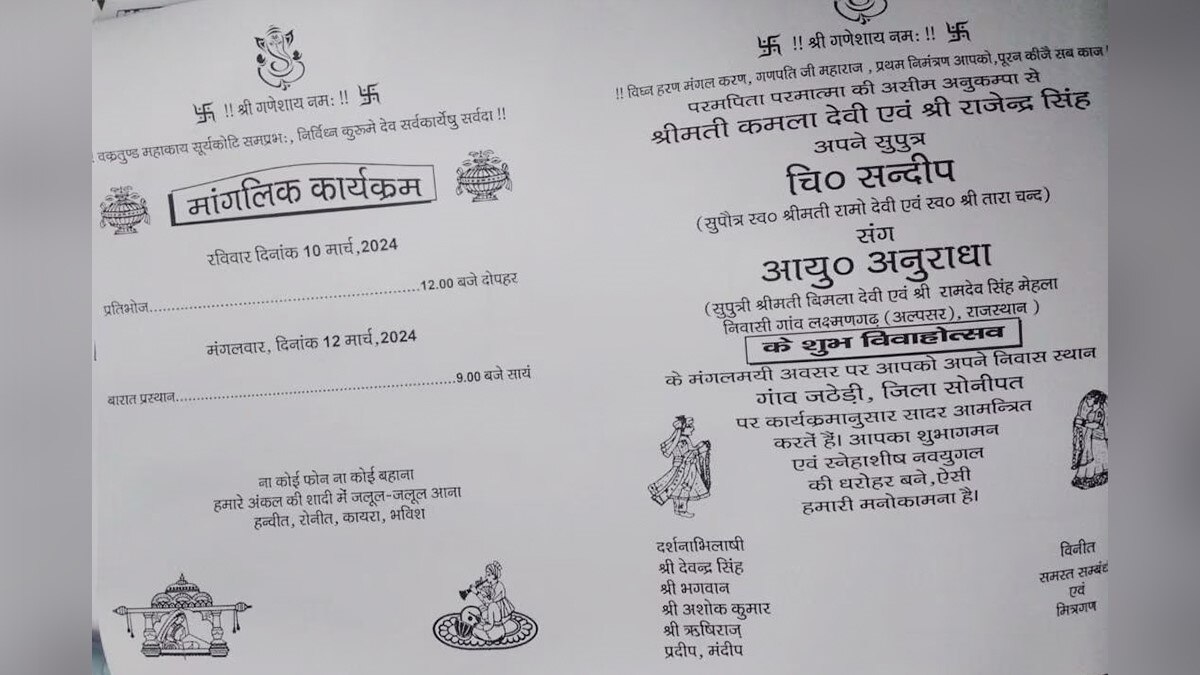 !! श्री गणेशाय नमः !!
वक्रतुण्ड महाकाय सूर्यकोटि समप्रभः, निर्विघ्न कुरूमे देव सर्वकार्येषु सर्वदा !!
मांगलिक कार्यक्रम
रविवार दिनांक 10 मार्च,2024
प्रतिभोज.......................................................12.00 बजे दोपहर
मंगलवार, दिनांक 12 मार्च,2024
बारात प्रस्थान.......................................................9.00 बजे सायं
ना कोई फोन ना कोई बहाना
हमारे अंकल की शादी में जलूल-जलूल आना
हन्वीत, रोनीत, कायरा, भविश
!! श्री गणेशाय नमः !!
!! विघ्न हरण मंगल करण, गणपति जी महाराज , प्रथम निमंत्रण आपको,पूरन कीजै सब काज !
परमपिता परमात्मा की असीम अनुकम्पा से
श्रीमती कमला देवी एवं श्री राजेन्द्र सिंह
अपने सुपुत्र
चि० सन्दीप
(सुपौत्र स्व० श्रीमती रामो देवी एवं स्व० श्री तारा चन्द)
संग
आयु० अनुराधा
(सुपुत्री श्रीमती बिमला देवी एवं श्री रामदेव सिंह मेहला
निवासी गांव लक्ष्मणगढ़ (अल्पसर), राजस्थान )
के शुभ विवाहोत्सव
के मंगलमयी अवसर पर आपको अपने निवास स्थान
गांव जठेड़ी, जिला सोनीपत
पर कार्यक्रमानुसार सादर आमन्त्रित
करतें हैं। आपका शुभागमन
एवं स्नेहाशीष नवयुगल
की धरोहर बने,ऐसी
हमारी मनोकामना है।
दर्शनाभिलाषी
श्री देवन्द्र सिंह
श्री भगवान
श्री अशोक कुमार
श्री ऋषिराज्
प्रदीप, मंदीप
विनीत
समस्त सम्बंधी
एवं
मित्रगण